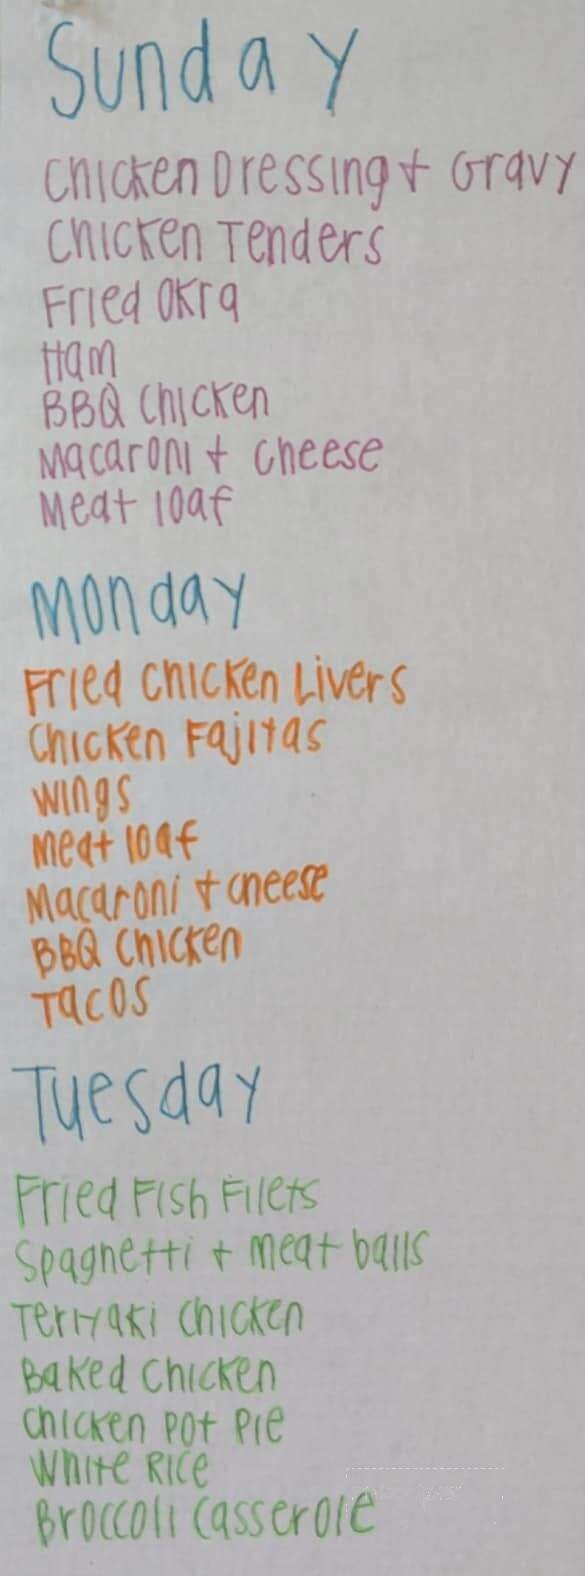 Sunday
Chicken Dressing + Gravy
Chicken Tenders
Fried Okra
Ham
BBQ Chicken
Macaroni + Cheese
Meat loaf
Monday
Fried Chicken Livers
Chicken Fajitas
Wings
Meat loaf
Macaroni + cheese
BBQ Chicken
Tacos
Tuesday
Fried Fish Filets
Spaghetti + meat balls
Teriyaki Chicken
Baked Chicken
Chicken Pot Pie
White Rice
Broccoli Casserole